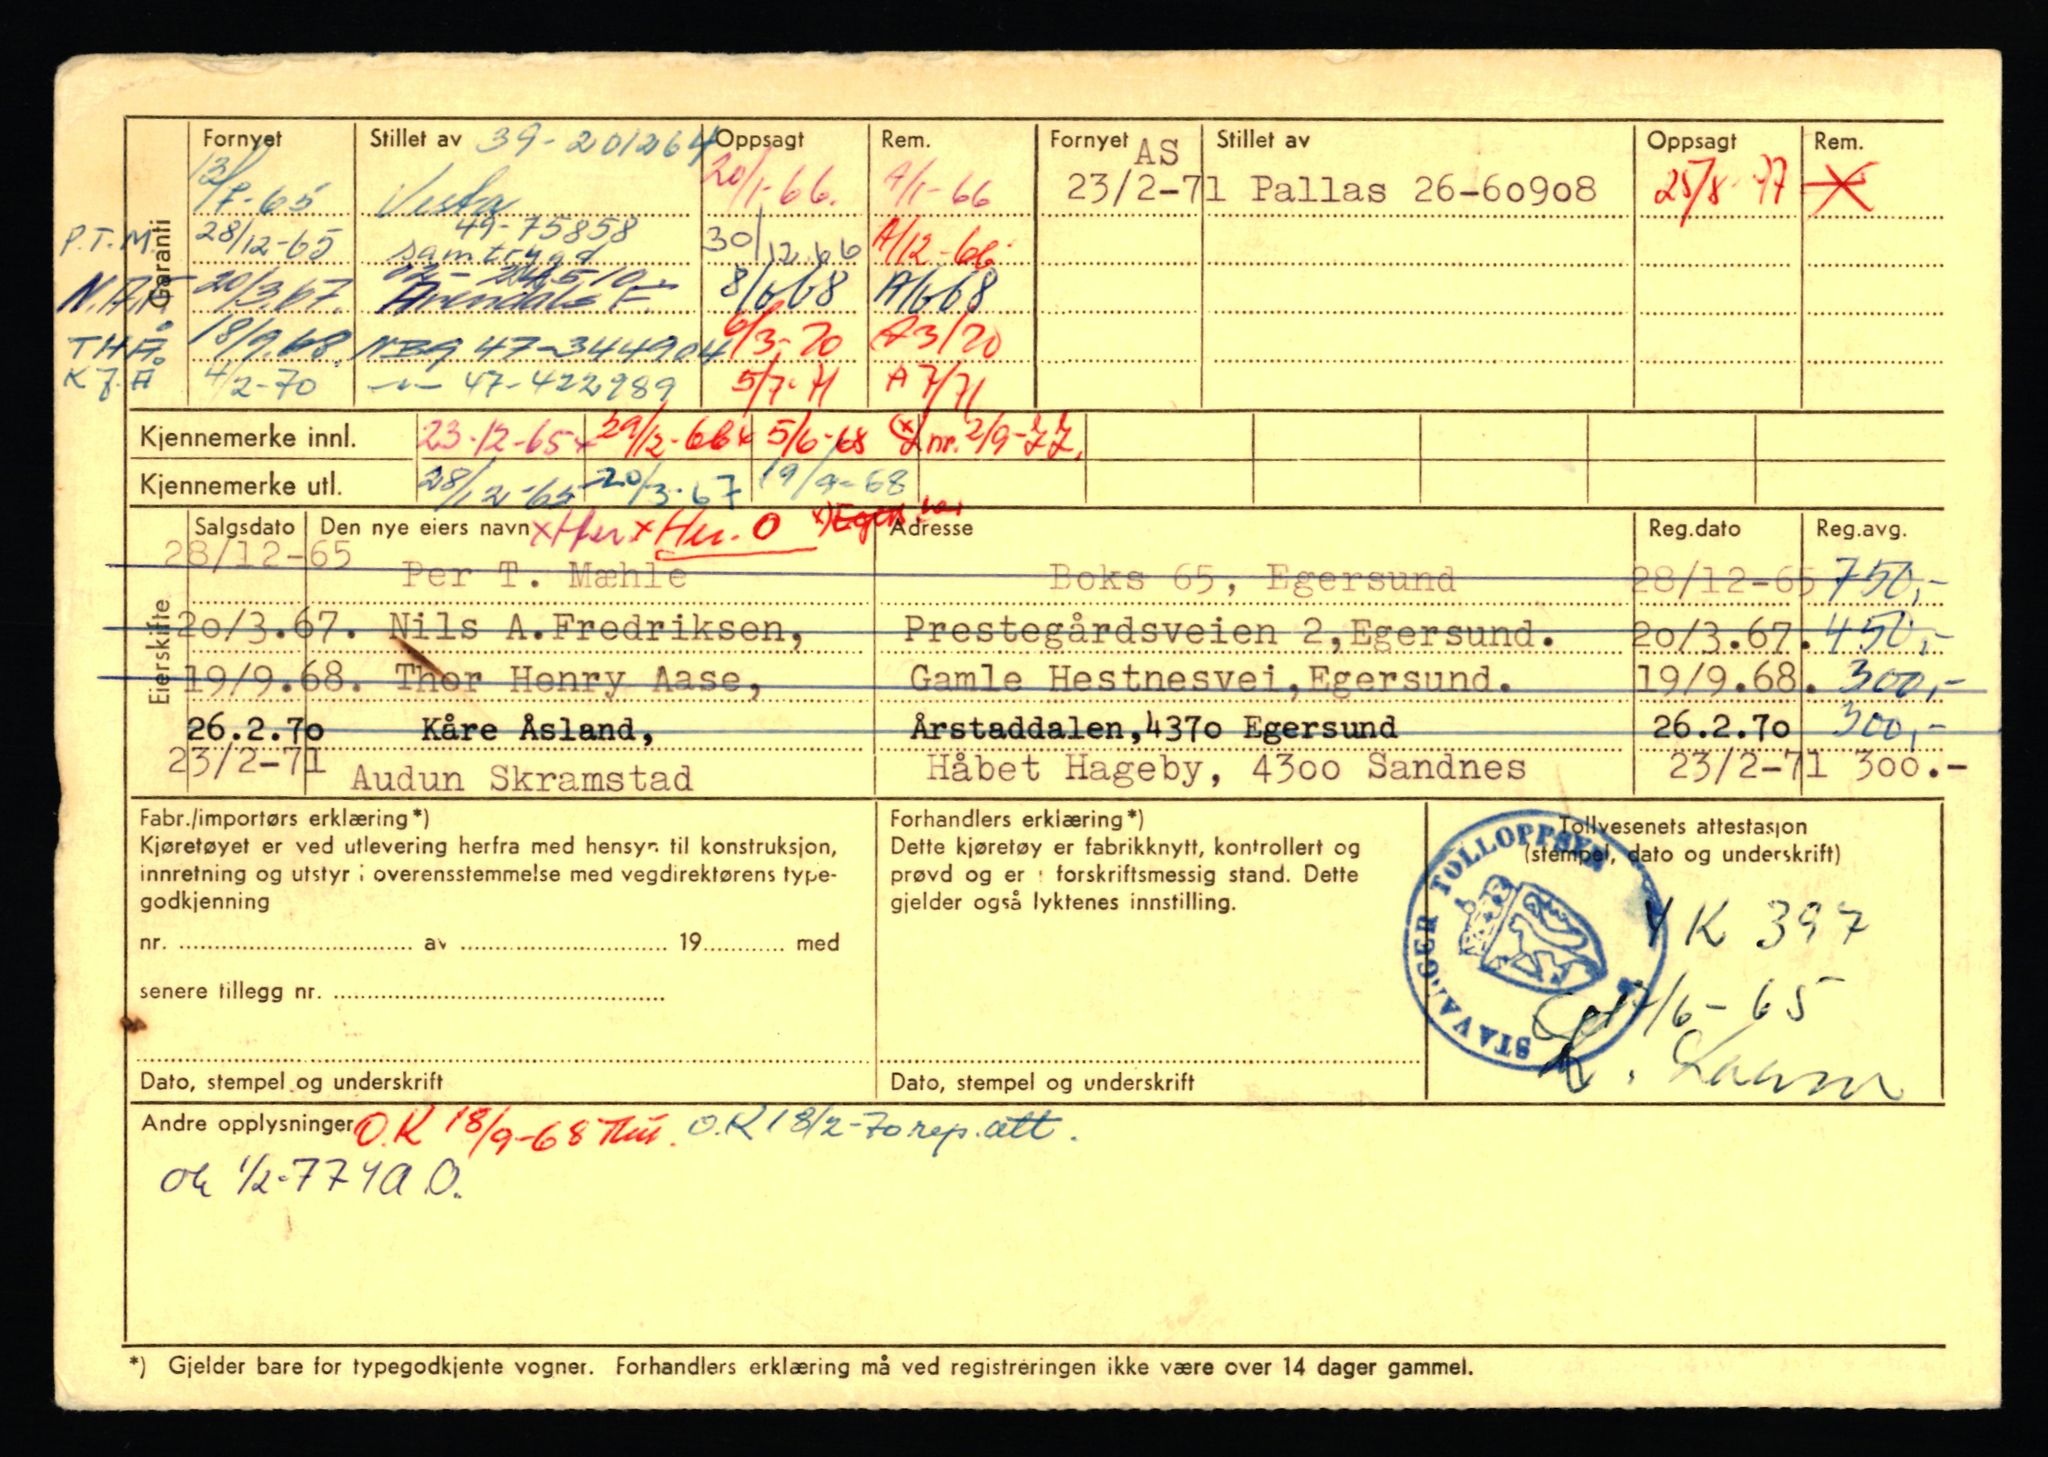 Garanti
Fornyet Stillet av 39-201264 Oppsagt Rem. Fornyet Stillet av Oppsagt Rem.
-65 Vesta 20/1-66. A/1-66 AS 23/2-71 Pallas 26-60908 25/8-77 X
P.T.M. 28/12-65 49-75858 samtrygd 30/12.66 A/12-66
20/3.67. Arendals F. 8/668 A/668
T H Å. 18/9.68. 47-344904 6/3-70 A3/70
K J. Å 4/2-70 -"- 47-422989 5/7-71 A 7/71
Kjennemerke innl. 23-12-65 x 29/12-66 x 5/6-68 nr. 2/9-77.
Kjennemerke utl. 28/12-65 20/3-67 19/9-68
Eierskifte
Salgsdato Den nye eiers navn Adresse Reg.dato Reg.avg.
28/12-65 Per T. Mæhle Boks 65, Egersund 28/12-65 750,-
20/3.67. Nils A.Fredriksen, Prestegårdsveien 2,Egersund. 20/3.67. 450,-
19/9.68. Thor Henry Aase, Gamle Hestnesvei,Egersund. 19/9.68. 300,-
26.2.70 Kåre Åsland, Årstaddalen,4370 Egersund 26.2.70 300,-
23/2-71 Audun Skramstad Håbet Hageby, 4300 Sandnes 23/2-71 300.-
Fabr./importørs erklæring*)
Kjøretøyet er ved utlevering herfra med hensyn til konstruksjon,
innretning og utstyr i overensstemmelse med vegdirektørens type-
godkjenning
nr. av 19 med
senere tillegg nr.
Dato, stempel og underskrift
Forhandlers erklæring*)
Dette kjøretøy er fabrikknytt, kontrollert og
prøvd og er i forskriftsmessig stand. Dette
gjelder også lyktenes innstilling.
Dato, stempel og underskrift
Tollvesenets attestasjon
(stempel, dato og underskrift)
STAVANGER TOLLOPPSYN
K 397
/6-65
Andre opplysninger O.K 18/9-68 O.K 18/2-70 rep.att.
ok 1/2-77
*) Gjelder bare for typegodkjente vogner. Forhandlers erklæring må ved registreringen ikke være over 14 dager gammel.